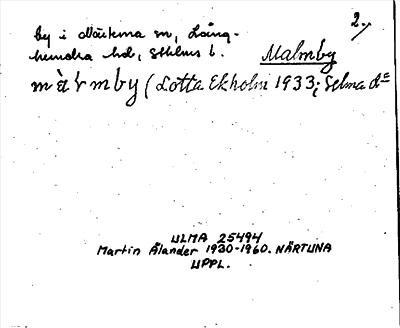 2.
by i Närtuna sn, Lång-
hundra hd, Sthlms l.
Malmby
màɽmby (Lotta Ekholm 1933; Selma d:o
ULMA 25494
Martin Ålander 1930-1960. NÄRTUNA
UPPL.